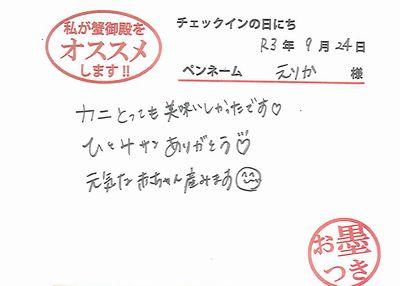 私が蟹御殿を
オススメ
します!!
チェックインの日にち
R3年 9月 24日
ペンネーム えりか 様
カニとっても美味しかったです♡
ひとみサン ありがとう♡
元気な赤ちゃん産みます
お墨
つき